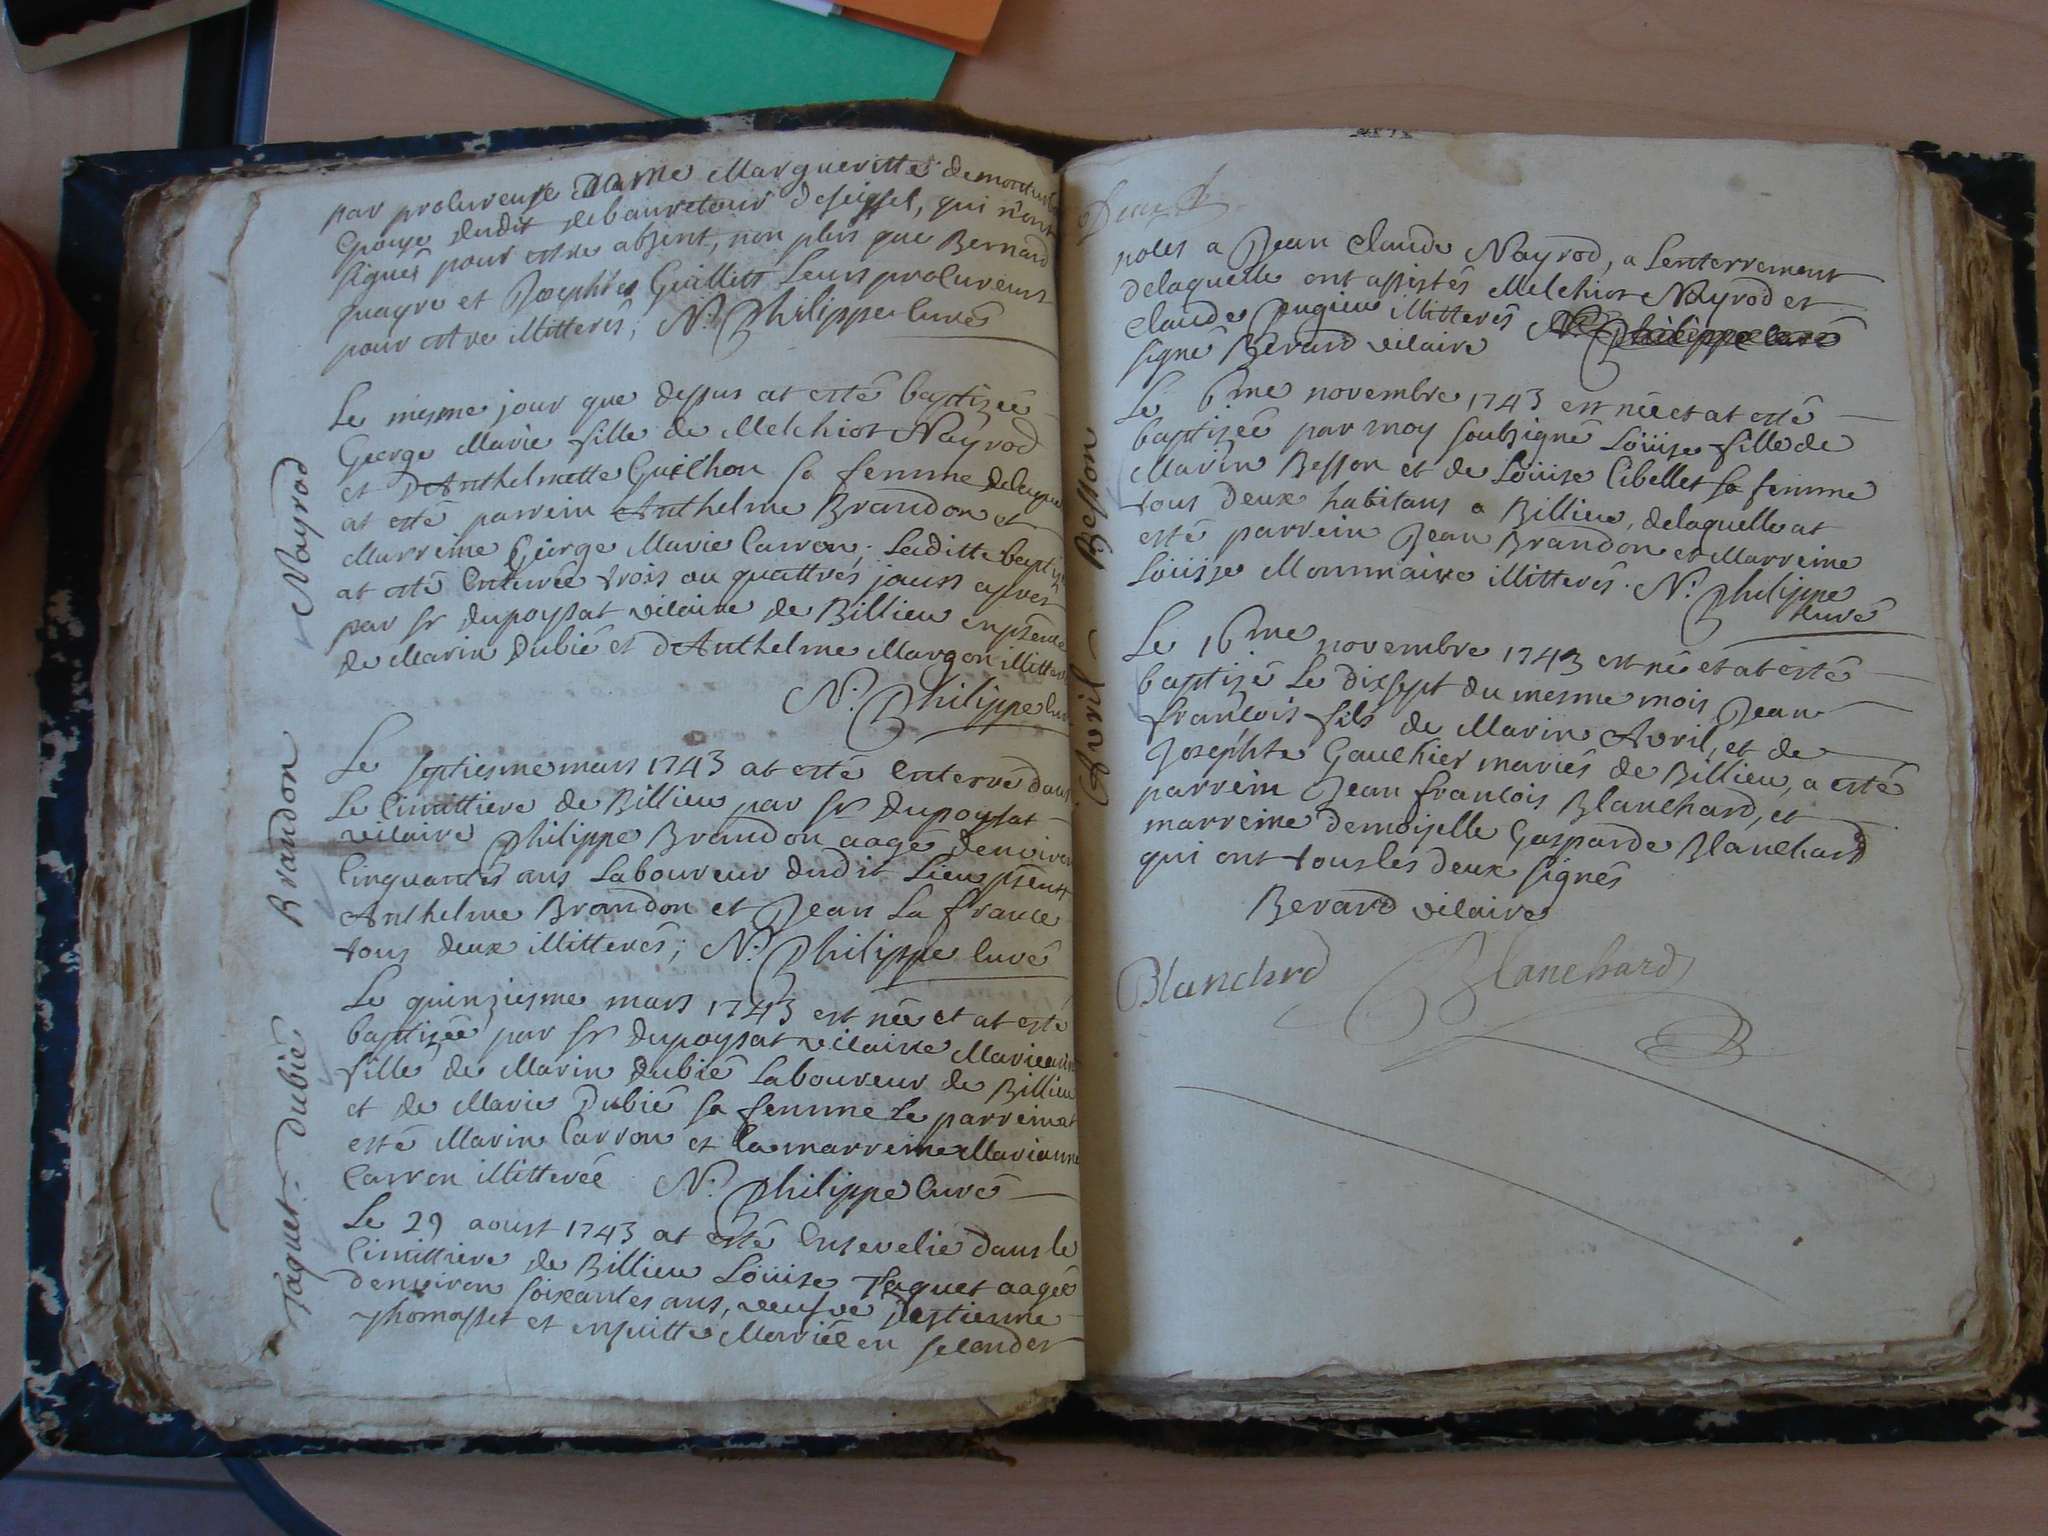 par procureuse dame Margueritte demontu
Epouse dudit debaureteur deseissel, qui n'ont
signés pour estre absent, non plus que Bernard
quayre et Josephte Guillet Leurs procureurs
pour estre illitterés; N. Philippe curés
Le mesme jour que dessus at esté baptizée
George Marie fille de Melchiot Nayrod
et D'Anthelmette Guilhon sa femme delaquelle
at esté parrein Anthelme Brandon et
Marreine George Marie Carron; Laditte bapti
at esté Enterrée trois ou quattres jours apres
par sr dupoysat vicaire de Billieu enpsence
de Marin Dubié et d'Anthelme Margon illitter
N. Philippe cur
Nayrod
Le septiesme mars 1743 at esté Enterré dans
Le Cimittiere de Billieu par sr dupoysat
vicaire Philippe Brandon aagé denviron
Cinquantes ans Laboureur dudit Lieu psents
Anthelme Brandon et Jean La france
tous deux illitterés; N. Philippe Curé
Brandon
Le quinziesme mars 1743 est née et at esté
baptizée par sr dupoysat vicaire Marie
fille de Marin Dubié Laboureur de Billieu
et de Marie Dubié sa femme Le parrein at
esté Marin Carron et la marreine Marianne
Carron illitterée N. Philippe Curé
Dubié
Le 29 aoust 1743 at esté Ensevelie dans le
Cimittiere de Billieu Loüise Jaquet aagée
denviron soixantes ans, veufve d'estienne
Thomasset et ensuitte Mariée en secondes
Jaquet
noles a Jean Claude Nayrod, a Lenterrement
delaquelle ont assistés Melchiot Nayrod et
Claude Pugieu illitterés N. Philippe curé
signé Berard vicaire
Le 6me novembre 1743 est née et at esté
baptizée par moy soubsigné Loüise fille de
Marin Besson et de Loüise Cibellet sa femme
tous deux habitans a Billieu, delaquelle at
esté parrein Jean Brandon et Marreine
Loüise Monnaire illitterés. N. Philippe
Curé
Besson
Le 16me novembre 1743 est né et at esté
baptizé Le dixsept du mesme mois Jean
francois fils de Marin Avril, et de
Josephte Gauthier mariés de Billieu, a esté
parrein Jean francois Blanchard, et
marreine demoiselle Gasparde Blanchard
qui ont tous les deux signés
Avril
Berard vicaire
Blanchrd Blanchard